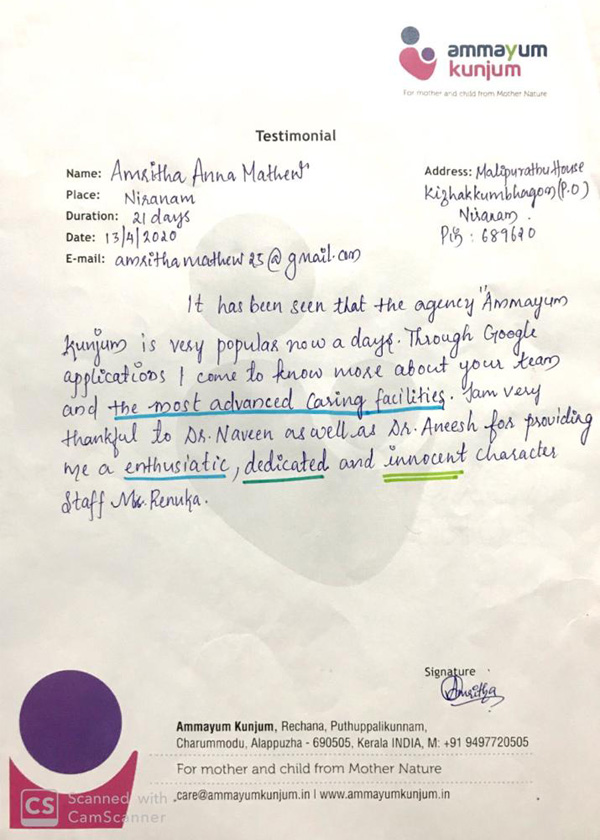 ammayum
kunjum
For mother and child from Mother Nature
Testimonial
Name: Amritha Anna Mathew
Place: Niranam
Duration: 21 days
Date: 13/4/2020
E-mail: amrithamathew25@gmail.com
Address: Malipurathu House
Kizhakkumbhagom (P.O)
Niranam.
Pin : 689620
It has been seen that the agency "Ammayum
Kunjum is very popular now a days. Through Google
applications I come to know more about your team
and the most advanced caring facilities. Iam very
thankful to Dr. Naveen as well as Dr. Aneesh for providing
me a enthusiatic, dedicated and innocent character
Staff Ms. Renuka.
Signature
Amritha
Ammayum Kunjum, Rechana, Puthuppalikunnam,
Charummodu, Alappuzha - 690505, Kerala INDIA, M: +91 9497720505
For mother and child from Mother Nature
care@ammayumkunjum.in I www.ammayumkunjum.in
CS Scanned with
CamScanner